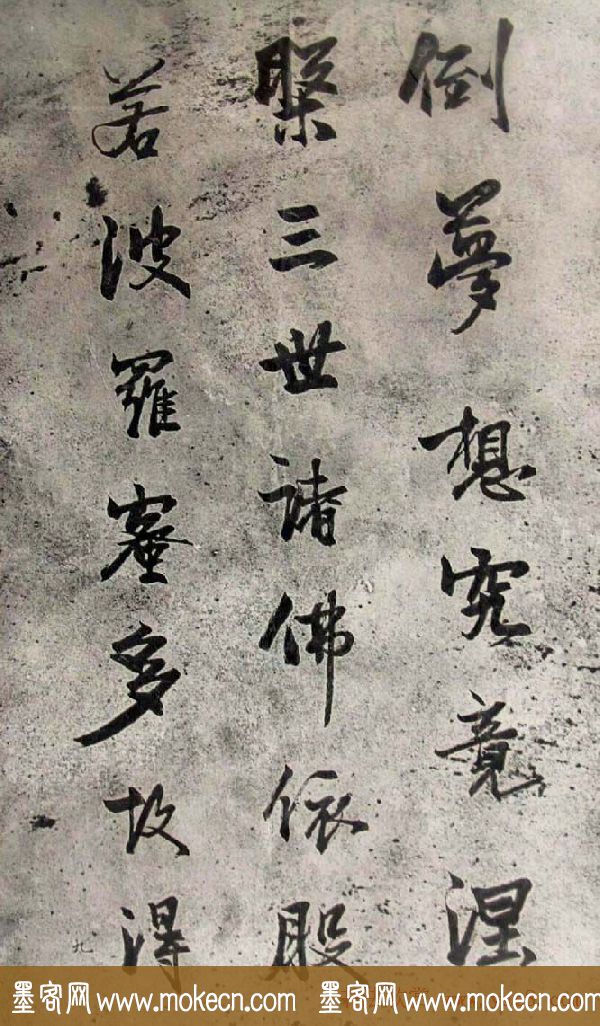 倒夢想究竟涅
槃三世諸佛依般
若波羅蜜多故得
九
墨客网 www.mokecn.com 墨客网 www.mokecn.com